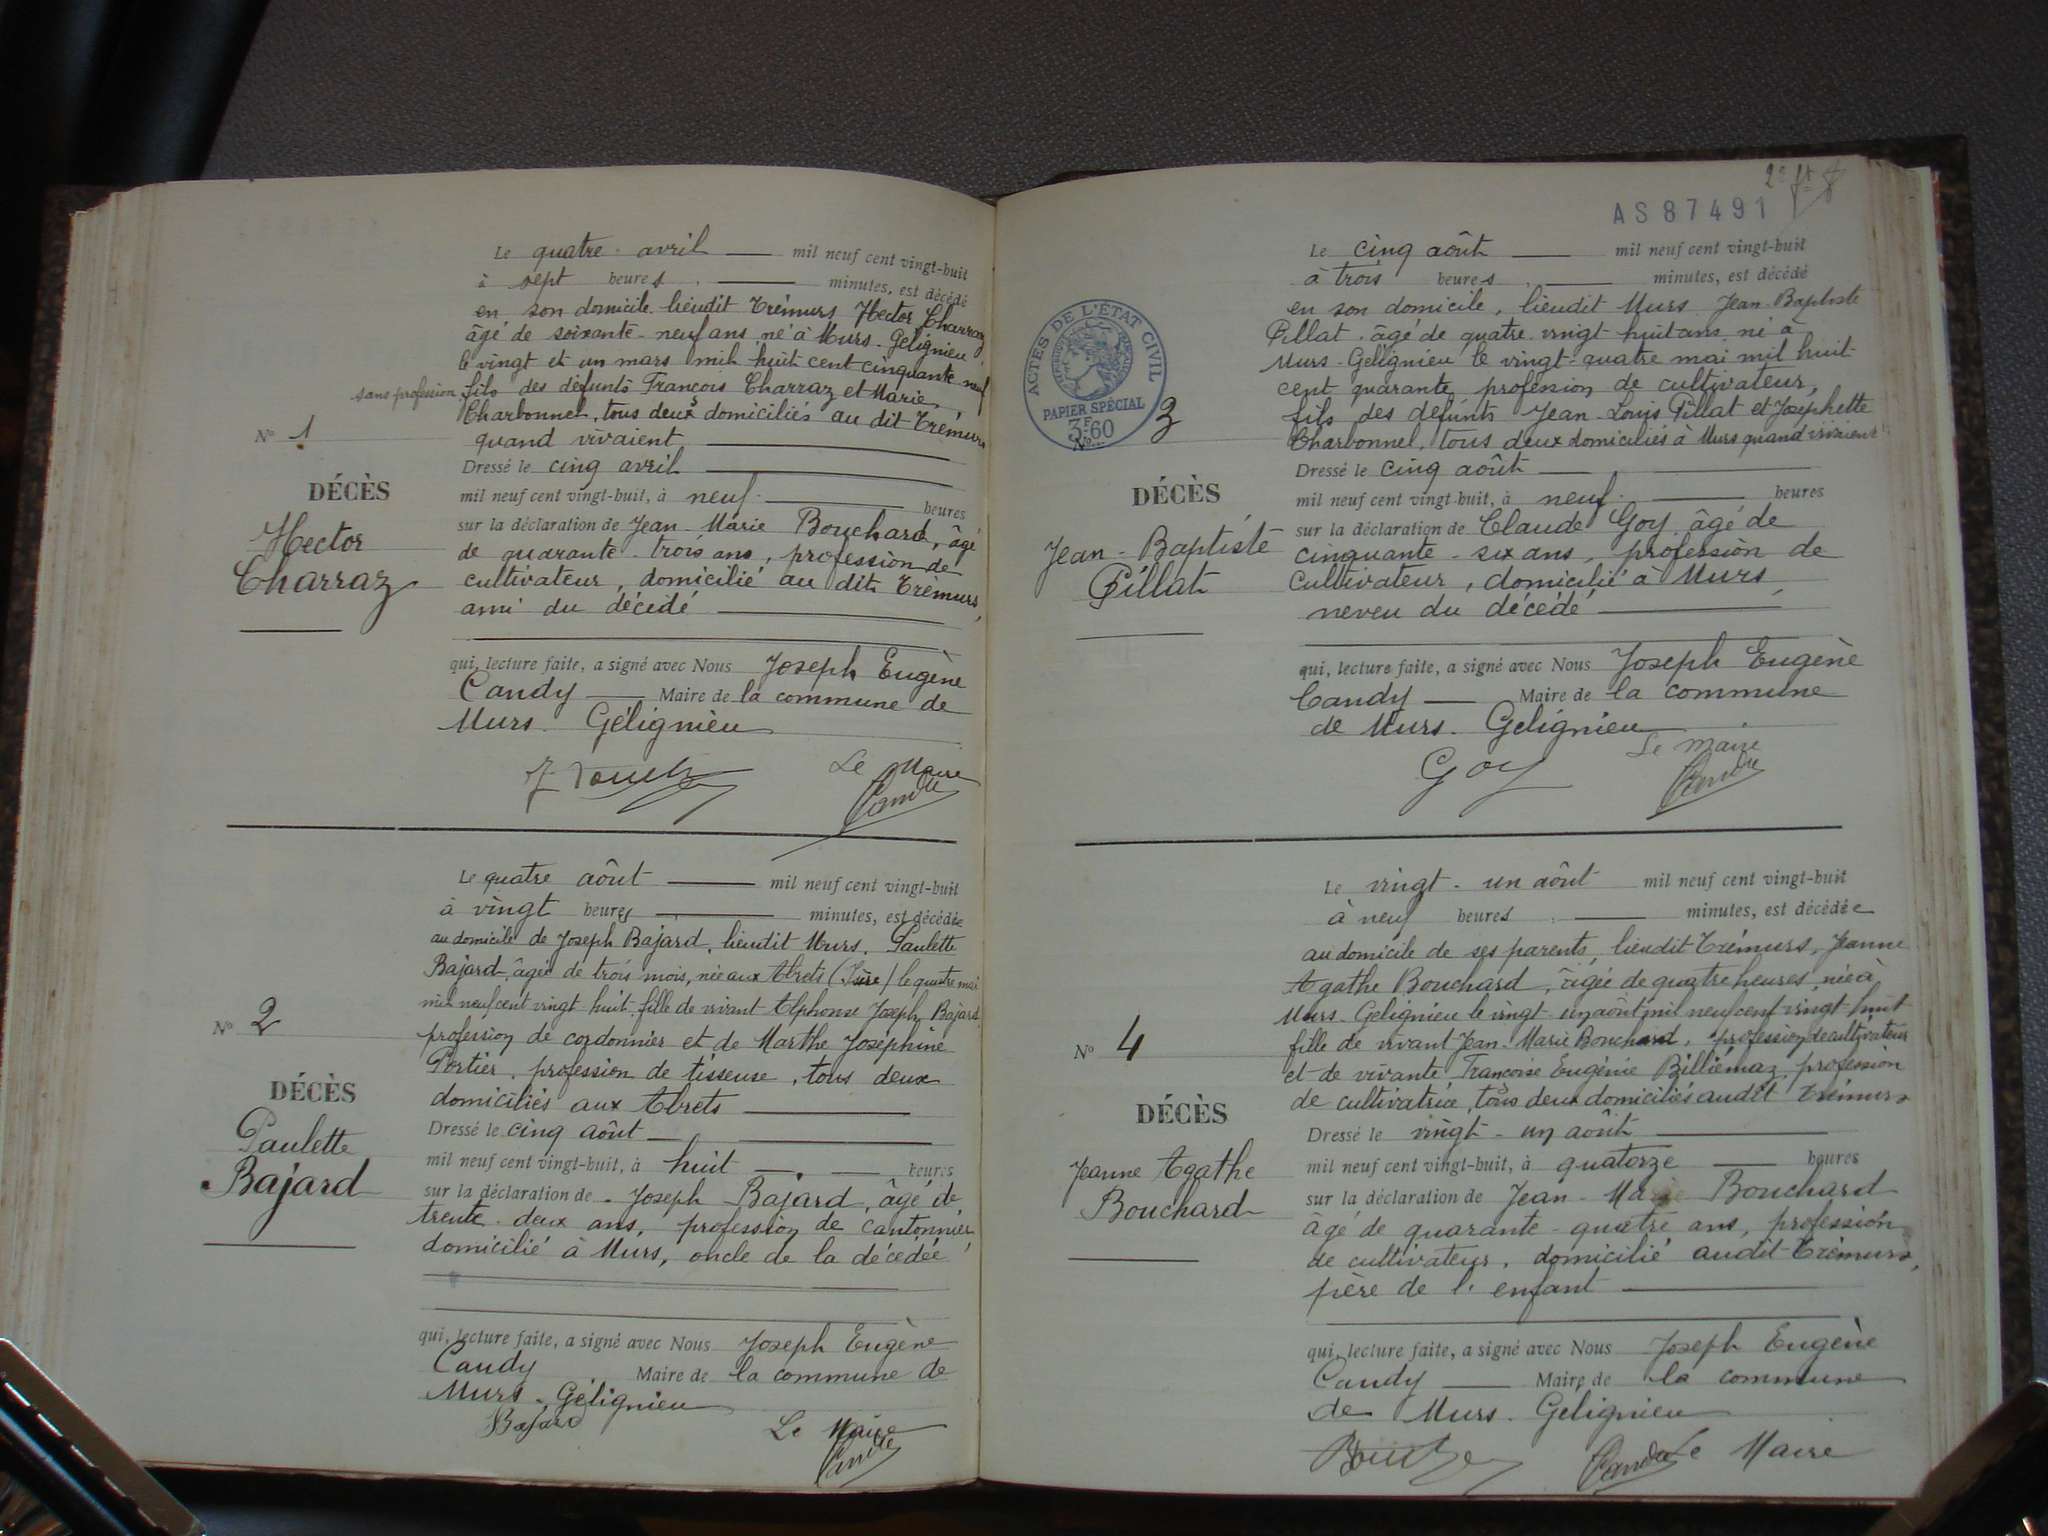 Le quatre avril mil neuf cent vingt-huit
à sept heures minutes, est décédé
en son domicile lieudit Trémurs Hector Charraz
âgé de soixante-neuf ans né à Murs-Gélignieu
le vingt et un mars mil huit cent cinquante neuf
sans profession fils des défunts François Charraz et Marie
Charbonnel, tous deux domiciliés au dit Trémurs
quand vivaient
N° 1
Dressé le cinq avril
DÉCÈS
mil neuf cent vingt-huit, à neuf heures
Hector
Charraz
sur la déclaration de Jean-Marie Bouchard, âgé
de quarante-trois ans, profession de
cultivateur, domicilié au dit Trémurs,
ami du décédé
qui, lecture faite, a signé avec Nous Joseph Eugène
Candy Maire de la commune de
Murs-Gélignieu
Le Maire
Le quatre août mil neuf cent vingt-huit
à vingt heures minutes, est décédée
au domicile de Joseph Bajard, lieudit Murs, Paulette
Bajard, âgée de trois mois, née aux Abrets (Isère) le quatre mai
mil neuf cent vingt-huit, fille de vivant Alphonse Joseph Bajard
profession de cordonnier et de Marthe Joséphine
Portier, profession de tisseuse, tous deux
domiciliés aux Abrets
N° 2
DÉCÈS
Paulette
Bajard
Dressé le cinq août
mil neuf cent vingt-huit, à huit heures
sur la déclaration de Joseph Bajard, âgé de
trente-deux ans, profession de cantonnier,
domicilié à Murs, oncle de la décédée
qui, lecture faite, a signé avec Nous Joseph Eugène
Candy Maire de la commune de
Murs-Gélignieu
Bajard
Le Maire
AS 87491
Le cinq août mil neuf cent vingt-huit
à trois heures minutes, est décédé
en son domicile, lieudit Murs Jean-Baptiste
Pillat, âgé de quatre-vingt-huit ans, né à
Murs-Gelignieu le vingt-quatre mai mil huit
cent quarante, profession de cultivateur,
fils des défunts Jean-Louis Pillat et Josephette
Charbonnel, tous deux domiciliés à Murs quand vivaient
ACTES DE L'ÉTAT CIVIL
PAPIER SPÉCIAL
3F60
N° 3
DÉCÈS
Jean-Baptiste
Pillat
Dressé le cinq août
mil neuf cent vingt-huit, à neuf heures
sur la déclaration de Claude Goy, âgé de
cinquante-six ans, profession de
cultivateur, domicilié à Murs,
neveu du décédé
qui, lecture faite, a signé avec Nous Joseph Eugène
Candy Maire de la commune
de Murs-Gelignieu
Goy
Le maire
Le vingt-un août mil neuf cent vingt-huit
à neuf heures minutes, est décédée
au domicile de ses parents, lieudit Trémurs, Jeanne
Agathe Bouchard, âgée de quatre heures, née à
Murs-Gelignieu le vingt-un août mil neuf cent vingt-huit
fille de vivant Jean-Marie Bouchard, profession de cultivateur
et de vivante Françoise Eugénie Billiémaz, profession
de cultivatrice, tous deux domiciliés audit Trémurs
N° 4
DÉCÈS
Jeanne Agathe
Bouchard
Dressé le vingt-un août
mil neuf cent vingt-huit, à quatorze heures
sur la déclaration de Jean-Marie Bouchard
âgé de quarante-quatre ans, profession
de cultivateur, domicilié audit Trémurs,
père de l'enfant
qui, lecture faite, a signé avec Nous Joseph Eugène
Candy Maire de la commune
de Murs-Gelignieu
Le Maire